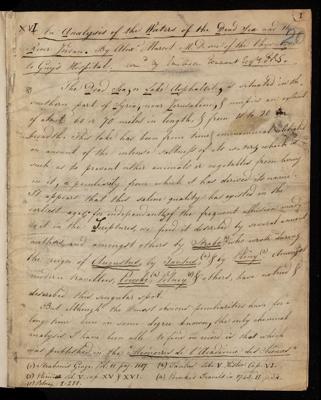 XVI An Analysis of the Waters of the Dead Sea and the
River Jordan. By Alexr. Marcet M.D. one of the Physicians
to Guy's Hospital. Comd. by Smithson Tennant Esqr. F.R.S.
The Dead Sea, or Lake Asphaltite, is situated in the
southern part of Syria, near Jerusalem, & occupies an extent
of about 60 or 70 miles in length, & from 10 to 20 in
breadth. This lake has been from time immemorial celebrated
on account of the intense saltness of its waters, which is
such as to prevent either animals or vegetables from living
in it, a peculiarity from which it has derived its name.
It appears that this saline quality has existed in the
earliest ages; for independently of the frequent allusions made
to it in the Scriptures, we find it described by several ancient
authors, and amongst others by Strabo, who wrote during
the reign of Augustus, by Tacitus & by Pliny. Amongst
modern travellers, Pococke, Volney & others, have noticed &
described this singular spot.
But although the
most obvious peculiarities have for a
long time been in some degree known, the only chemical
analysis I have been able to find on record is that which
was published in the Mémoires de l'Académie des Sciences